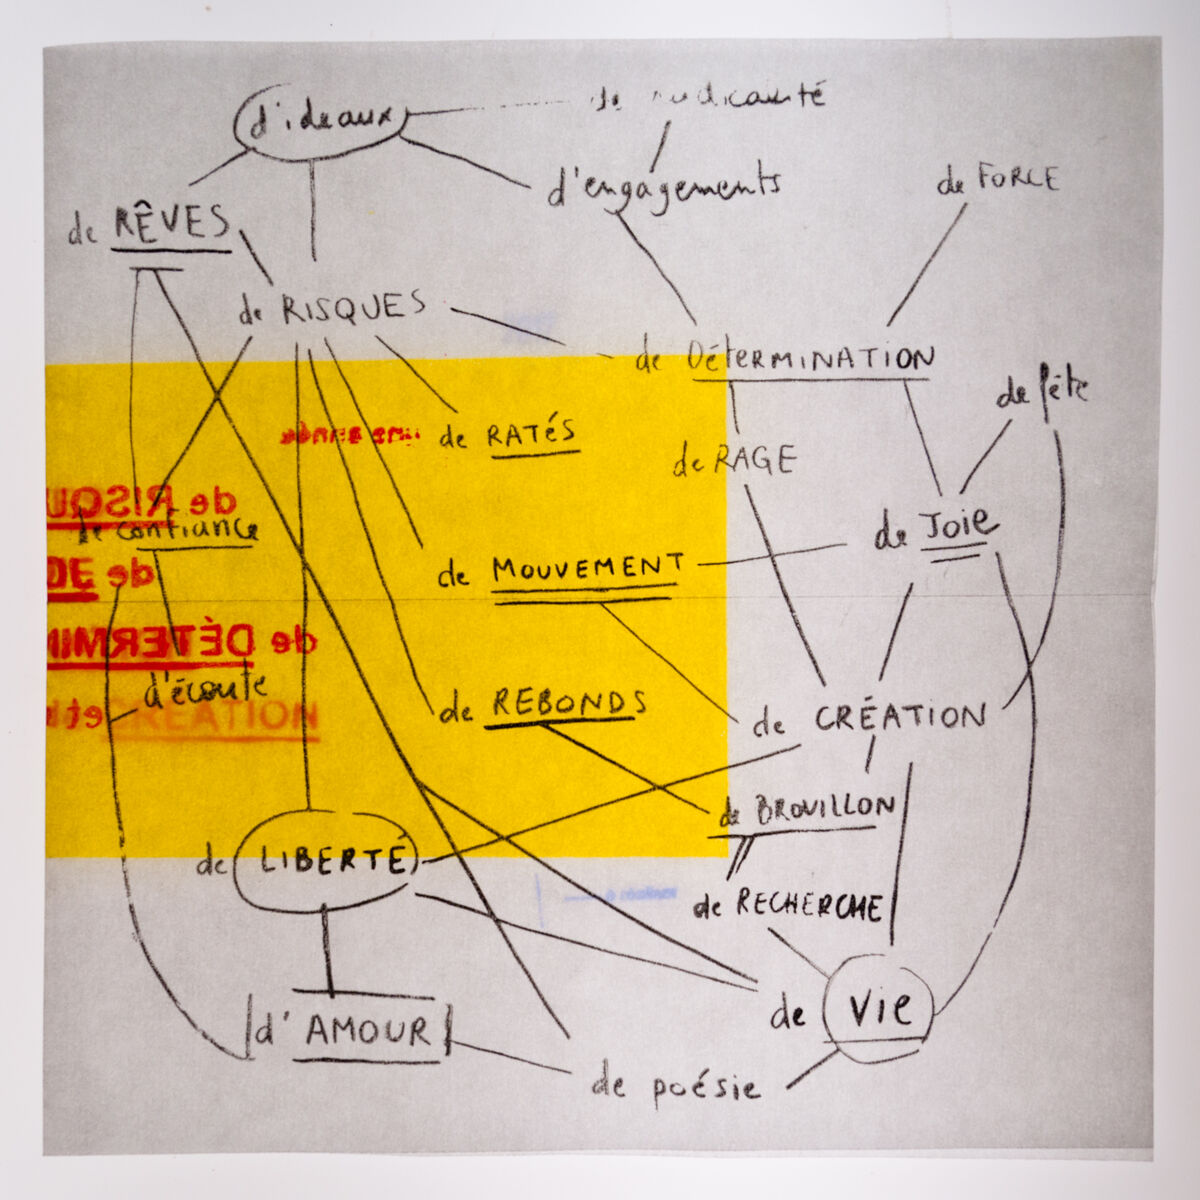 d'ideaux
de radicalité
d'engagements
de FORCE
de RÊVES
de RISQUES
de DéTERMINATION
de fête
une année
de RATéS
de RAGE
de RISQU
de confiance
de JOIE
de DE
de MOUVEMENT
de DÉTERMIN
d'écoute
et CRÉATION
de REBONDS
de CRÉATION
de BROUILLON
de LIBERTÉ
de RECHERCHE
de VIE
d'AMOUR
de poésie